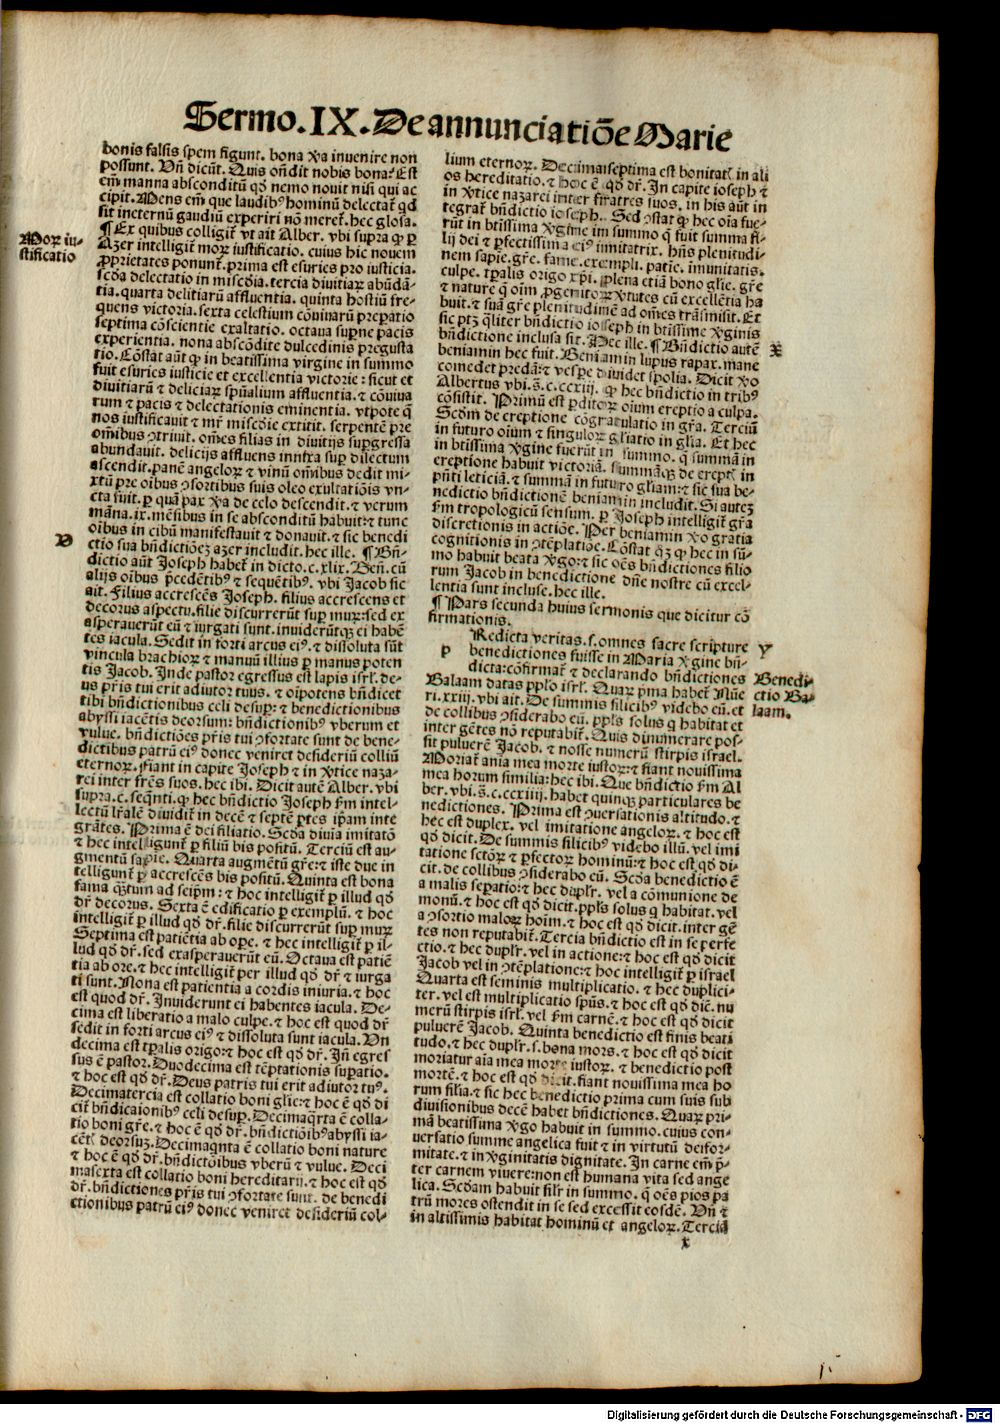 Sermo.IX.De annunciatiōe Marie
bonis falsis spem figunt. bona ꝟa invenire non
possunt. Vñ dicūt. Quis oñdit nobis bona? Est
em̄ manna absconditū qḋ nemo novit nisi qui ac
cipit. Mens em̄ que laudibꝰ hominū delectat᷑ qḋ
sit internū gaudiū experiri nō meret᷑. hec glosa.
¶ Ex quibus colligit᷑ vt ait Alber. vbi supra ꝙ ꝑ
Moꝝ iu-
stificatio
Azer intelligit᷑ moꝝ iustificatio. cuius hic novem
ꝓprietates ponunt᷑. prima est esuries pro iusticia.
scḋa delectatio in miscḋia. tercia divitiaꝝ abūdā-
tia. quarta delitiarū affluentia. quinta hostiū fre-
quens victoria. sexta celestium cōvivarū preꝑatio
septima cōscientie exaltatio. octava suꝑne pacis
experientia. nona abscōdite dulcedinis pregusta
tio. Cōstat aūt ꝙ in beatissima virgine in summo
fuit esuries iusticie et excellentia victorie : sicut et
divitiarū ⁊ deliciaꝝ spūalium affluentia. ⁊ cōviva
rum ⁊ pacis ⁊ delectationis eminentia. vtpote q̄
nos iustificauit ⁊ mr̄ miscḋie extitit. serpentē pre
om̄ibus ꝯtrivit. om̄es filias in divitijs suꝑgressa
abundavit. delicijs affluens innixa suꝑ dilectum
ascendit. panē angeloꝝ ⁊ vinū om̄ibus dedit mi-
xtū pre oibus ꝯsortibus suis oleo exultatiōis vn-
cta fuit. ꝑ quā pax ꝟa de celo descendit. ⁊ verum
māna. ix. mēsibus in se absconditū habuit: ⁊ tunc
oibus in cibū manifestavit ⁊ donavit. ⁊ sic benedi
V
ctio sua bñdictiōeꝫ azer includit. hec ille. ¶ Bñ-
dictio aūt Joseph habet᷑ in dicto. c. xlix. Beñ. cū
alijs oibus p̄cedētibꝰ ⁊ sequētibꝰ. vbi Jacob sic
ait. Filius accrescēs Joseph. filius accrescens et
decorus aspectu. filie discurrerūt suꝑ muꝝ: sed ex
asperaverūt eū ⁊ iurgati sunt. inviderūtqꝫ ei habē
tes iacula. Sedit in forti arcus eiꝰ. ⁊ dissoluta sūt
vincula brachioꝝ ⁊ manuū illius ꝑ manus poten
tis Jacob. Inde pastor egressus est lapis isrl̄. de-
us pr̄is tui erit adiutor tuus. ⁊ oīpotens bñdicet
tibi bñdictionibus celi desuꝑ: ⁊ benedictionibus
abyssi iacētis deorsum: bñdictionibꝰ vberum et
vulue. bñdictiōes pr̄is tui ꝯfortate sunt de bene-
dictibus patrū eiꝰ donec veniret desideriū colliū
eternoꝝ. Fiant in capite Joseph ⁊ in ꝟtice naza-
rei inter fr̄es suos. hec ibi. Dicit autē Alber. vbi
supra. c. seqn̄ti. ꝙ hec bñdictio Joseph ẜm intel-
lectū lr̄alē dividit᷑ in decē ⁊ septē ꝑtes ip̄am inte
grātes. Prima ē dei filiatio. Scḋa divīa imitatō
⁊ hec intelligunt᷑ ꝑ filiū bis positū. Terciū est au-
gmentū sapīe. Quarta augmētū gr̄e: ⁊ iste due in
telligunt᷑ ꝑ accrescēs bis positū. Quinta est bona
fama q̄tum ad seip̄m: ⁊ hoc intelligit᷑ ꝑ illud qḋ
dr̄ decorus. Sexta ē edificatio ꝑ exemplū. ⁊ hoc
intelligit᷑ ꝑ illud qḋ dr̄. filie discurrerūt suꝑ muꝝ
Septima est patiētia ab oꝑe. ⁊ hec intelligit᷑ ꝑ il-
lud qḋ dr̄. sed exasperaverūt eū. Octava est patiē
tia ab ore. ⁊ hec intelligit᷑ per illud qḋ dr̄ ⁊ iurga
ti sunt. Nona est patientia a cordis iniuria. ⁊ hoc
est quod dr̄. Inviderunt ei habentes iacula. De-
cima est liberatio a malo culpe. ⁊ hoc est quod dr̄
sedit in forti arcus eiꝰ ⁊ dissoluta sunt iacula. Vn
decima est tꝑalis origo: ⁊ hoc est qḋ dr̄. Iñ egres
sus ē pastor. Duodecima est tēptationis suꝑatio.
⁊ hoc est qḋ dr̄. Deus patris tui erit adiutor tuꝰ.
Decimatercia est collatio boni glīe: ⁊ hoc ē qḋ di
cit᷑ bñdicaionibꝰ celi desuꝑ. Decimaq̄rta ē colla-
tio boni gr̄e. ⁊ hoc ē qḋ dr̄. bñdictiōibꝰ abyssi ia-
cēt᷑ deorsuꝫ. Decimaqnta ē collatio boni nature
⁊ hoc ē qḋ dr̄. bñdictōibus vberū ⁊ vulue. Deci
masexta est collatio boni hereditarij. ⁊ hoc est qḋ
dr̄. bñdictiones pr̄is tui ꝯfortate sunt. de benedi
ctionibus patrū eiꝰ donec veniret desideriū col-
lium eternoꝝ. Decimaseptima est bonitat᷑ in ali
os hereditatio. ⁊ hoc ē qḋ dr̄. In capite ioseph ⁊
in ꝟtice nazarei inter fratres suos. in his aūt in
tegrat᷑ bñdictio ioseph. Sed ꝯstat ꝙ hec oīa fue-
rūt in btīssima ꝟgine in summo q̄ fuit summa fi-
lij dei ⁊ ꝑfectissima eiꝰ imitatrix. hñs plenitudi-
nem sapīe. gr̄e. fame. exempli. patīe. imunitatis.
culpe. tꝑalis origo xp̄i. plena etiā bono glīe. gr̄e
⁊ nature q̄ oīm ꝓgenitoꝝ ꝟtutes cū excellētia ha
buit. ⁊ suā gr̄e plenitudinē ad om̄es trāsmisit. Et
sic ptꝫ q̄liter bñdictio ioseph in btīssime ꝟginis
bñdictione inclusa sit. Hec ille. ¶ Bñdictio autē
X
beniamin hec fuit. Beniamin lupus rapax. mane
comedet predā: ⁊ vesꝑe dividet spolia. Dicit ꝟo
Albertus vbi. s̄. c. ccxiij. ꝙ hec bñdictio in tribꝰ
cōsistit. Primū est ꝑditoꝝ oium ereptio a culpa.
Scḋm de ereptione cōgratulatio in gr̄a. Terciū
in futuro oium ⁊ singuloꝝ gl̄iatio in gl̄ia. Et hec
in btīssima ꝟgine fuerūt in summo. q̄ summā in
ereptione habuit victoriā. summāqꝫ de erept᷑ in
pn̄ti leticiā. ⁊ summā in futuro gl̄iam: ⁊ sic sua be-
nedictio bñdictionē beniamin includit. Si auteꝫ
ẜm tropologicū sensum. ꝑ Joseph intelligit᷑ gr̄a
discretionis in actiōe. Per beniamin ꝟo gratia
cognitionis in ꝯtēplatiōe. Cōstat q̄ꝫ ꝙ hec in sū-
mo habuit beata ꝟgo: ⁊ sic oēs bñdictiones filio
rum Jacob in benedictione dn̄e nostre cū excel-
lentia sunt incluse. hec ille.
¶ Pars secunda huius sermonis que dicitur cō
firmationis.
p
Redicta veritas. s. omnes sacre scripture
Y
benedictiones fuisse in Maria ꝟgine bñ-
dicta: cōfirmat᷑ ⁊ declarando bñdictiones
Benedi-
ctio Ba-
laam.
Balaam datas ppl̄o isrl̄. Quaꝝ p̄ma habet᷑ Nūe
ri. xxiij. vbi ait. De summis silicibꝰ videbo eū. et
de collibus ꝯsiderabo eū. ppl̄s solus q̄ habitat et
inter gētes nō reputabit᷑. Quis dinumerare pos-
sit pulverē Jacob. ⁊ nosse numerū stirpis israel.
Moriat᷑ aīa mea morte iustoꝝ: ⁊ fiant novissima
mea horum similia: hec ibi. Que bñdictio ẜm Al
ber. vbi. s̄. c. ccxiiij. habet quinqꝫ particulares be
nedictiones. Prima est ꝯversationis altitudo. ⁊
hec est duplex. vel imitatione angeloꝝ. ⁊ hoc est
qḋ dicit. De summis silicibꝰ videbo illū. vel imi
tatione sctōꝝ ⁊ ꝑfectoꝝ hominū: ⁊ hoc est qḋ di-
cit. de collibus ꝯsiderabo eū. Scḋa benedictio ē
a malis seꝑatio: ⁊ hec dupl̄r. vel a cōmunione de
monū. ⁊ hoc est qḋ dicit. ppl̄s solus q̄ habitat. vel
a ꝯsortio maloꝝ hoīm. ⁊ hoc est qḋ dicit. inter gē
tes non reputabit᷑. Tercia bñdictio est in se ꝑfe
ctio. ⁊ hec dupl̄r. vel in actione: ⁊ hoc est qḋ dicit
Jacob vel in ꝯtēplatione: ⁊ hoc intelligit᷑ ꝑ israel
Quarta est seminis multiplicatio. ⁊ hec duplici-
ter. vel est multiplicatio spūs. ⁊ hoc est qḋ dic̄. nu
merū stirpis isrl̄. vel ẜm carnē. ⁊ hoc est qḋ dicit
pulverē Jacob. Quinta benedictio est finis beati
tudo. ⁊ hec dupl̄r. s. bona mors. ⁊ hoc est qḋ dicit
moriatur aīa mea morte iustoꝝ. ⁊ benedictio post
mortē. ⁊ hoc est qḋ dicit. fiant novissima mea ho
rum silīa. ⁊ sic hec benedictio prima cum suis sub
divisionibus decē habet bñdictiones. Quaꝝ pri-
mā beatissima ꝟgo habuit in summo. cuius con-
versatio summe angelica fuit ⁊ in virtutū deifor-
mitate. ⁊ in ꝟginitatis dignitate. In carne em̄ p̄-
ter carnem vivere: non est humana vita sed ange
lica. Scḋam habuit sil̄r in summo. q̄ oēs pios pa
trū mores ostendit in se sed excessit eosdē. Vñ ⁊
in altissimis habitat hominū et angeloꝝ. Tercia
x
Digitalisierung gefördert durch die Deutsche Forschungsgemeinschaft - DFG